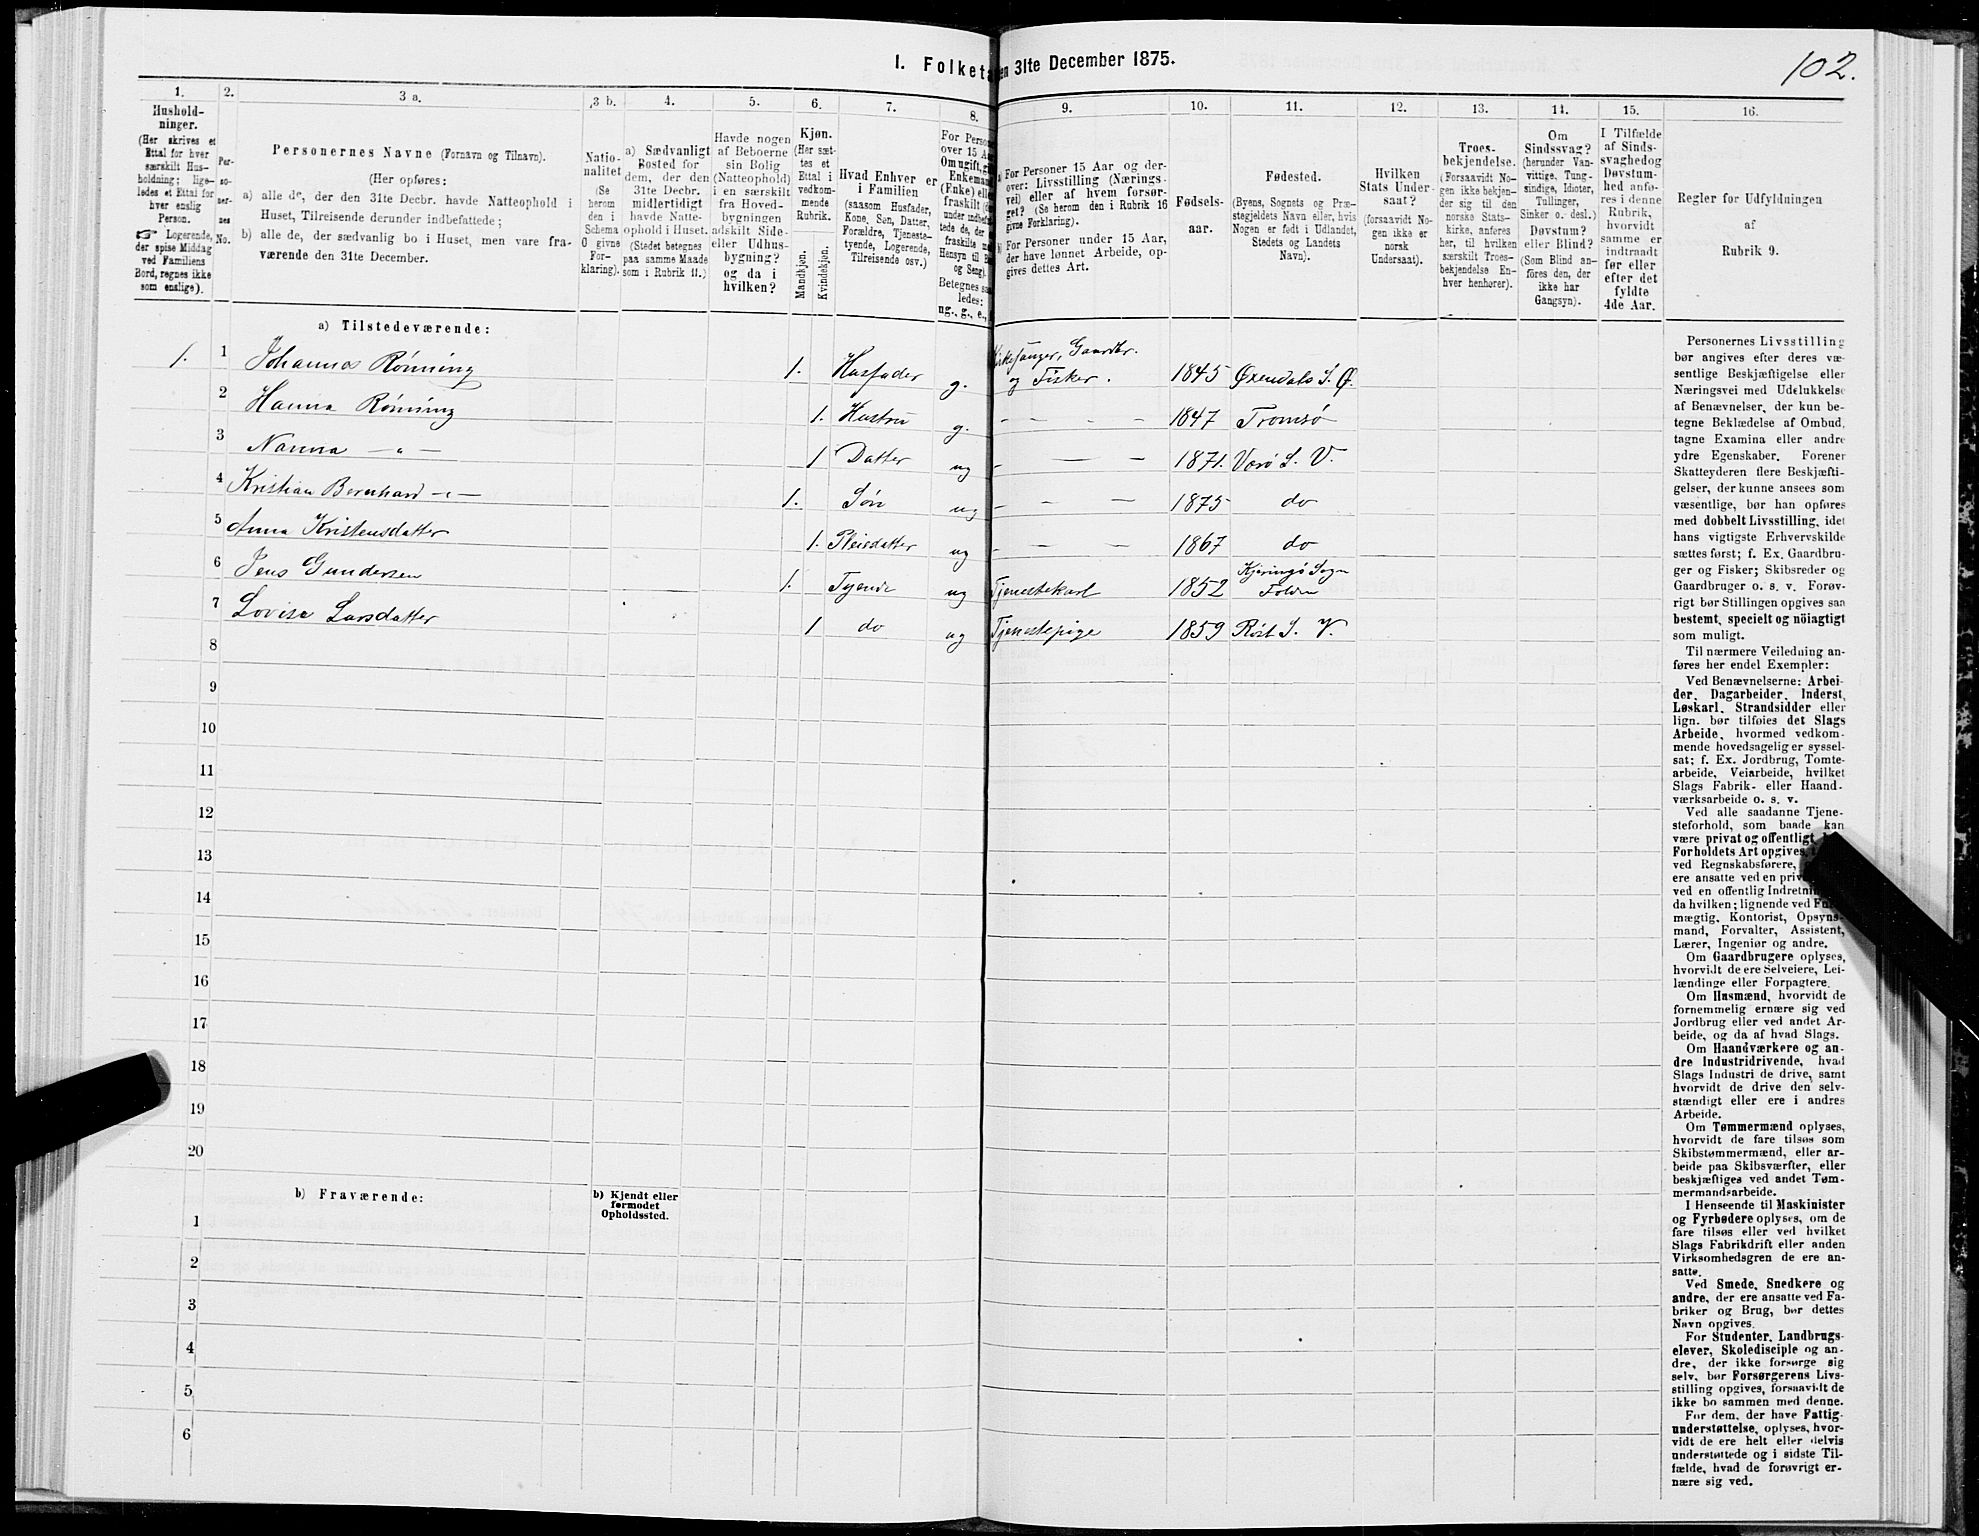 102.
I. Folketæ
en 31te December 1875.
1.
Hushold-
ninger.
(Her skrives et
Ettal for hver
særskilt Hus-
holdning; lige-
ledes et Ettal for
hver enslig
Person.
☞ Logerende,
der spise Middag
ved Familiens
Bord, regnes ikke
som enslige).
2.
Per-
so-
ner-
nes
No.
3 a.
Personernes Navne (Fornavn og Tilnavn).
(Her opføres:
a) alle de, der den 31te Decbr. havde Natteophold i
Huset, Tilreisende derunder indbefattede;
b) alle de, der sædvanlig bo i Huset, men vare fra-
værende den 31te December.
3 b.
Natio-
nalitet
(Se
herom
den i
Schema
O givne
For-
klaring).
4.
a) Sædvanligt
Bosted for
dem, der den
31te Decbr.
midlertidigt
havde Natte-
ophold i Huset.
(Stedet betegnes
paa samme Maade
som i Rubrik 11.)
5.
Havde nogen
af Beboerne
sin Bolig
(Natteophold)
i en særskilt
fra Hoved-
bygningen
adskilt Side-
eller Udhus-
bygning?
og da i
hvilken?
6.
Kjøn.
(Her sæt-
tes et
Ettal i
vedkom-
mende
Rubrik.
Mandkjøn.
Kvindekjøn.
7.
Hvad Enhver er
i Familien
(saasom Husfader,
Kone, Søn, Datter,
Forældre, Tjeneste-
tyende, Logerende,
Tilreisende osv.)
8.
For Perso
over 15 Aa
Om ugift, gi
Enkemand
(Enke) elle
fraskilt (de
under indbefa
tede de, der e
fraskilte me
Hensyn til B
og Seng).
Betegnes saa
ledes:
ug., g., e.,
9.
For Personer 15 Aar og der-
over: Livsstilling (Nærings-
vei) eller af hvem forsør-
get? (Se herom den i Rubrik 16
givne Forklaring).
b) For Personer under 15 Aar,
der have lønnet Arbeide, op-
gives dettes Art.
10.
Fødsels-
aar.
11.
Fødested.
(Byens, Sognets og Præ-
stegjeldets Navn eller, hvis
Nogen er født i Udlandet,
Stedets og Landets
Navn).
12.
Hvilken
Stats Under-
saat?
(forsaavidt No-
gen ikke er
norsk
Undersaat).
13.
Troes-
bekjendelse.
(Forsaavidt No-
gen ikke bekjen-
der sig til den
norske Stats-
kirke, anføres
her, til hvilken
særskilt Troes-
bekjendelse En-
hver henhører).
14.
Om
Sindssvag?
(herunder Van-
vittige, Tung-
sindige, Idioter,
Tullinger,
Sinker o. desl.)
Døvstum?
eller Blind?
(Som Blind an-
føres den, der
ikke har
Gangsyn).
15.
I Tilfælde
af Sinds-
svaghed og
Døvstum-
hed anfø-
res i denne
Rubrik,
hvorvidt
samme er
indtraadt
før eller
efter det
fyldte
4de Aar.
16.
Regler for Udfyldningen
af
Rubrik 9.
a) Tilstedeværende:
1. 1 Johannes Rønning 1. Husfader g. Kirkesanger, Gaardbr.
og Fisker. 1845 Øxendals S. Ø.
2 Hanna Rønning 1. Hustru g. - - - 1847 Tromsø
3 Nanna — „ — 1 Datter ug - - - 1871. Værø S. V.
4 Kristian Bernhard — „ — 1. Søn ug - - - 1875 do
5 Anna Kristensdatter 1. Pleiedatter ug - - - 1867 do
6 Jens Gundersen 1. Tyende ug Tjenestekarl 1852 Kjerringø Sogn
Folden
7 Lovise Larsdatter 1 do ug Tjenestepige 1859 Røst S. V.
8
9
10
11
12
13
14
15
16
17
18
19
20
b) Fraværende:
b) Kjendt eller
formodet
Opholdssted.
1
2
3
4
5
6
Personernes Livsstilling
bør angives efter deres væ-
sentlige Beskjæftigelse eller
Næringsvei med Udelukkelse
af Benævnelser, der kun be-
tegne Beklædelse af Ombud,
tagne Examina eller andre
ydre Egenskaber. Forener
Skatteyderen flere Beskjæfti-
gelser, der kunne ansees som
væsentlige, bør han opføres
med dobbelt Livsstilling, idet
hans vigtigste Erhvervskilde
sættes først; f. Ex. Gaardbru-
ger og Fisker; Skibsreder og
Gaardbruger o. s. v. Forøv-
rigt bør Stillingen opgives saa
bestemt, specielt og nöiagtigt
som muligt.
Til nærmere Veiledning an-
føres her endel Exempler:
Ved Benævnelserne: Arbei-
der, Dagarbeider, Inderst,
Løskarl, Strandsidder eller
lign. bør tilføies det Slags
Arbeide, hvormed vedkom-
mende hovedsagelig er syssel-
sat; f. Ex. Jordbrug, Tomte-
arbeide, Veiarbeide, hvilket
Slags Fabrik- eller Haand-
værksarbeide o. s. v.
Ved alle saadanne Tjene-
steforhold, som baade kan
være privat og offentligt,
Forholdets Art opgives,
ved Regnskabsførere,
ere ansatte ved en priv
ved en offentlig Indretni
da hvilken; lignende ved Fuld-
mægtig, Kontorist, Opsyns-
mand, Forvalter, Assistent,
Lærer, Ingeniør og andre.
Om Gaardbrugere oplyses,
hvorvidt de ere Selveiere, Lei-
lændinge eller Forpagtere.
Om Husmænd, hvorvidt de
fornemmelig ernære sig ved
Jordbrug eller ved andet Ar-
beide, og da af hvad Slags.
Om Haandværkere og an-
dre Industridrivende, hvad
Slags Industri de drive, samt
hvorvidt de drive den selv-
stændigt eller ere i andres
Arbeide.
Om Tømmermænd oplyses,
hvorvidt de fare tilsøs som
Skibstømmermænd, eller ar-
beide paa Skibsværfter, eller
beskjæftiges ved andet Tøm-
mermandsarbeide.
I Henseende til Maskinister
og Fyrbødere oplyses, om de
fare tilsøs eller ved hvilket
Slags Fabrikdrift eller anden
Virksomhedsgren de ere an-
satte.
Ved Smede, Snedkere og
andre, der ere ansatte ved Fa-
briker og Brug, bør dettes
Navn opgives.
For Studenter, Landbrugs-
elever, Skoledisciple og an-
dre, der ikke forsørge sig
selv, bør Forsørgerens Livs-
stilling opgives, forsaavidt de
ikke bo sammen med denne.
For dem, der have Fattig-
understøttelse, oplyses, hvor-
vidt de ere helt eller delvis
understøttede og i sidste Til-
fælde, hvad de forøvrigt er-
nære sig ved.